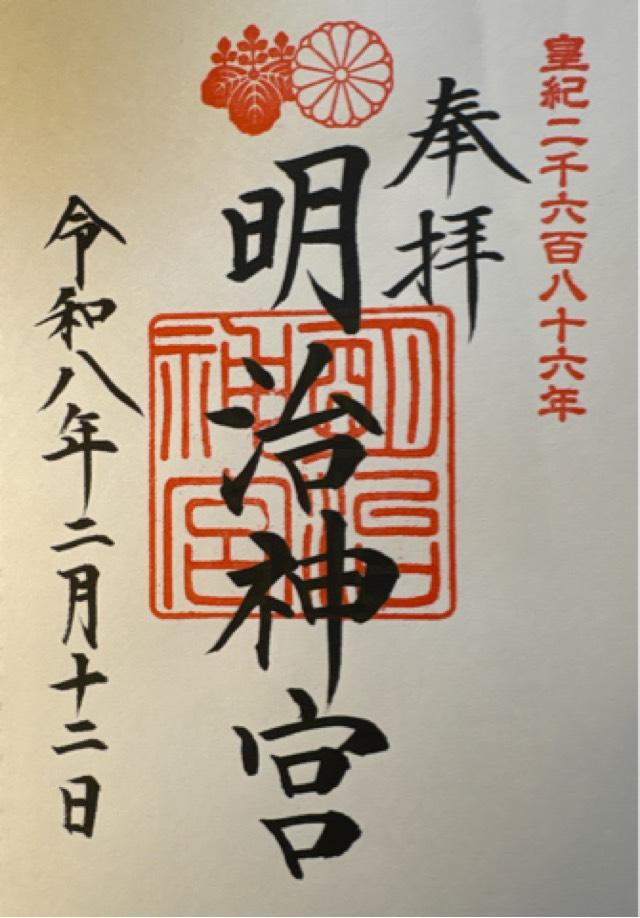 皇紀二千六百八十六年
奉拝
明治神宮
明治神宮
令和八年二月十二日